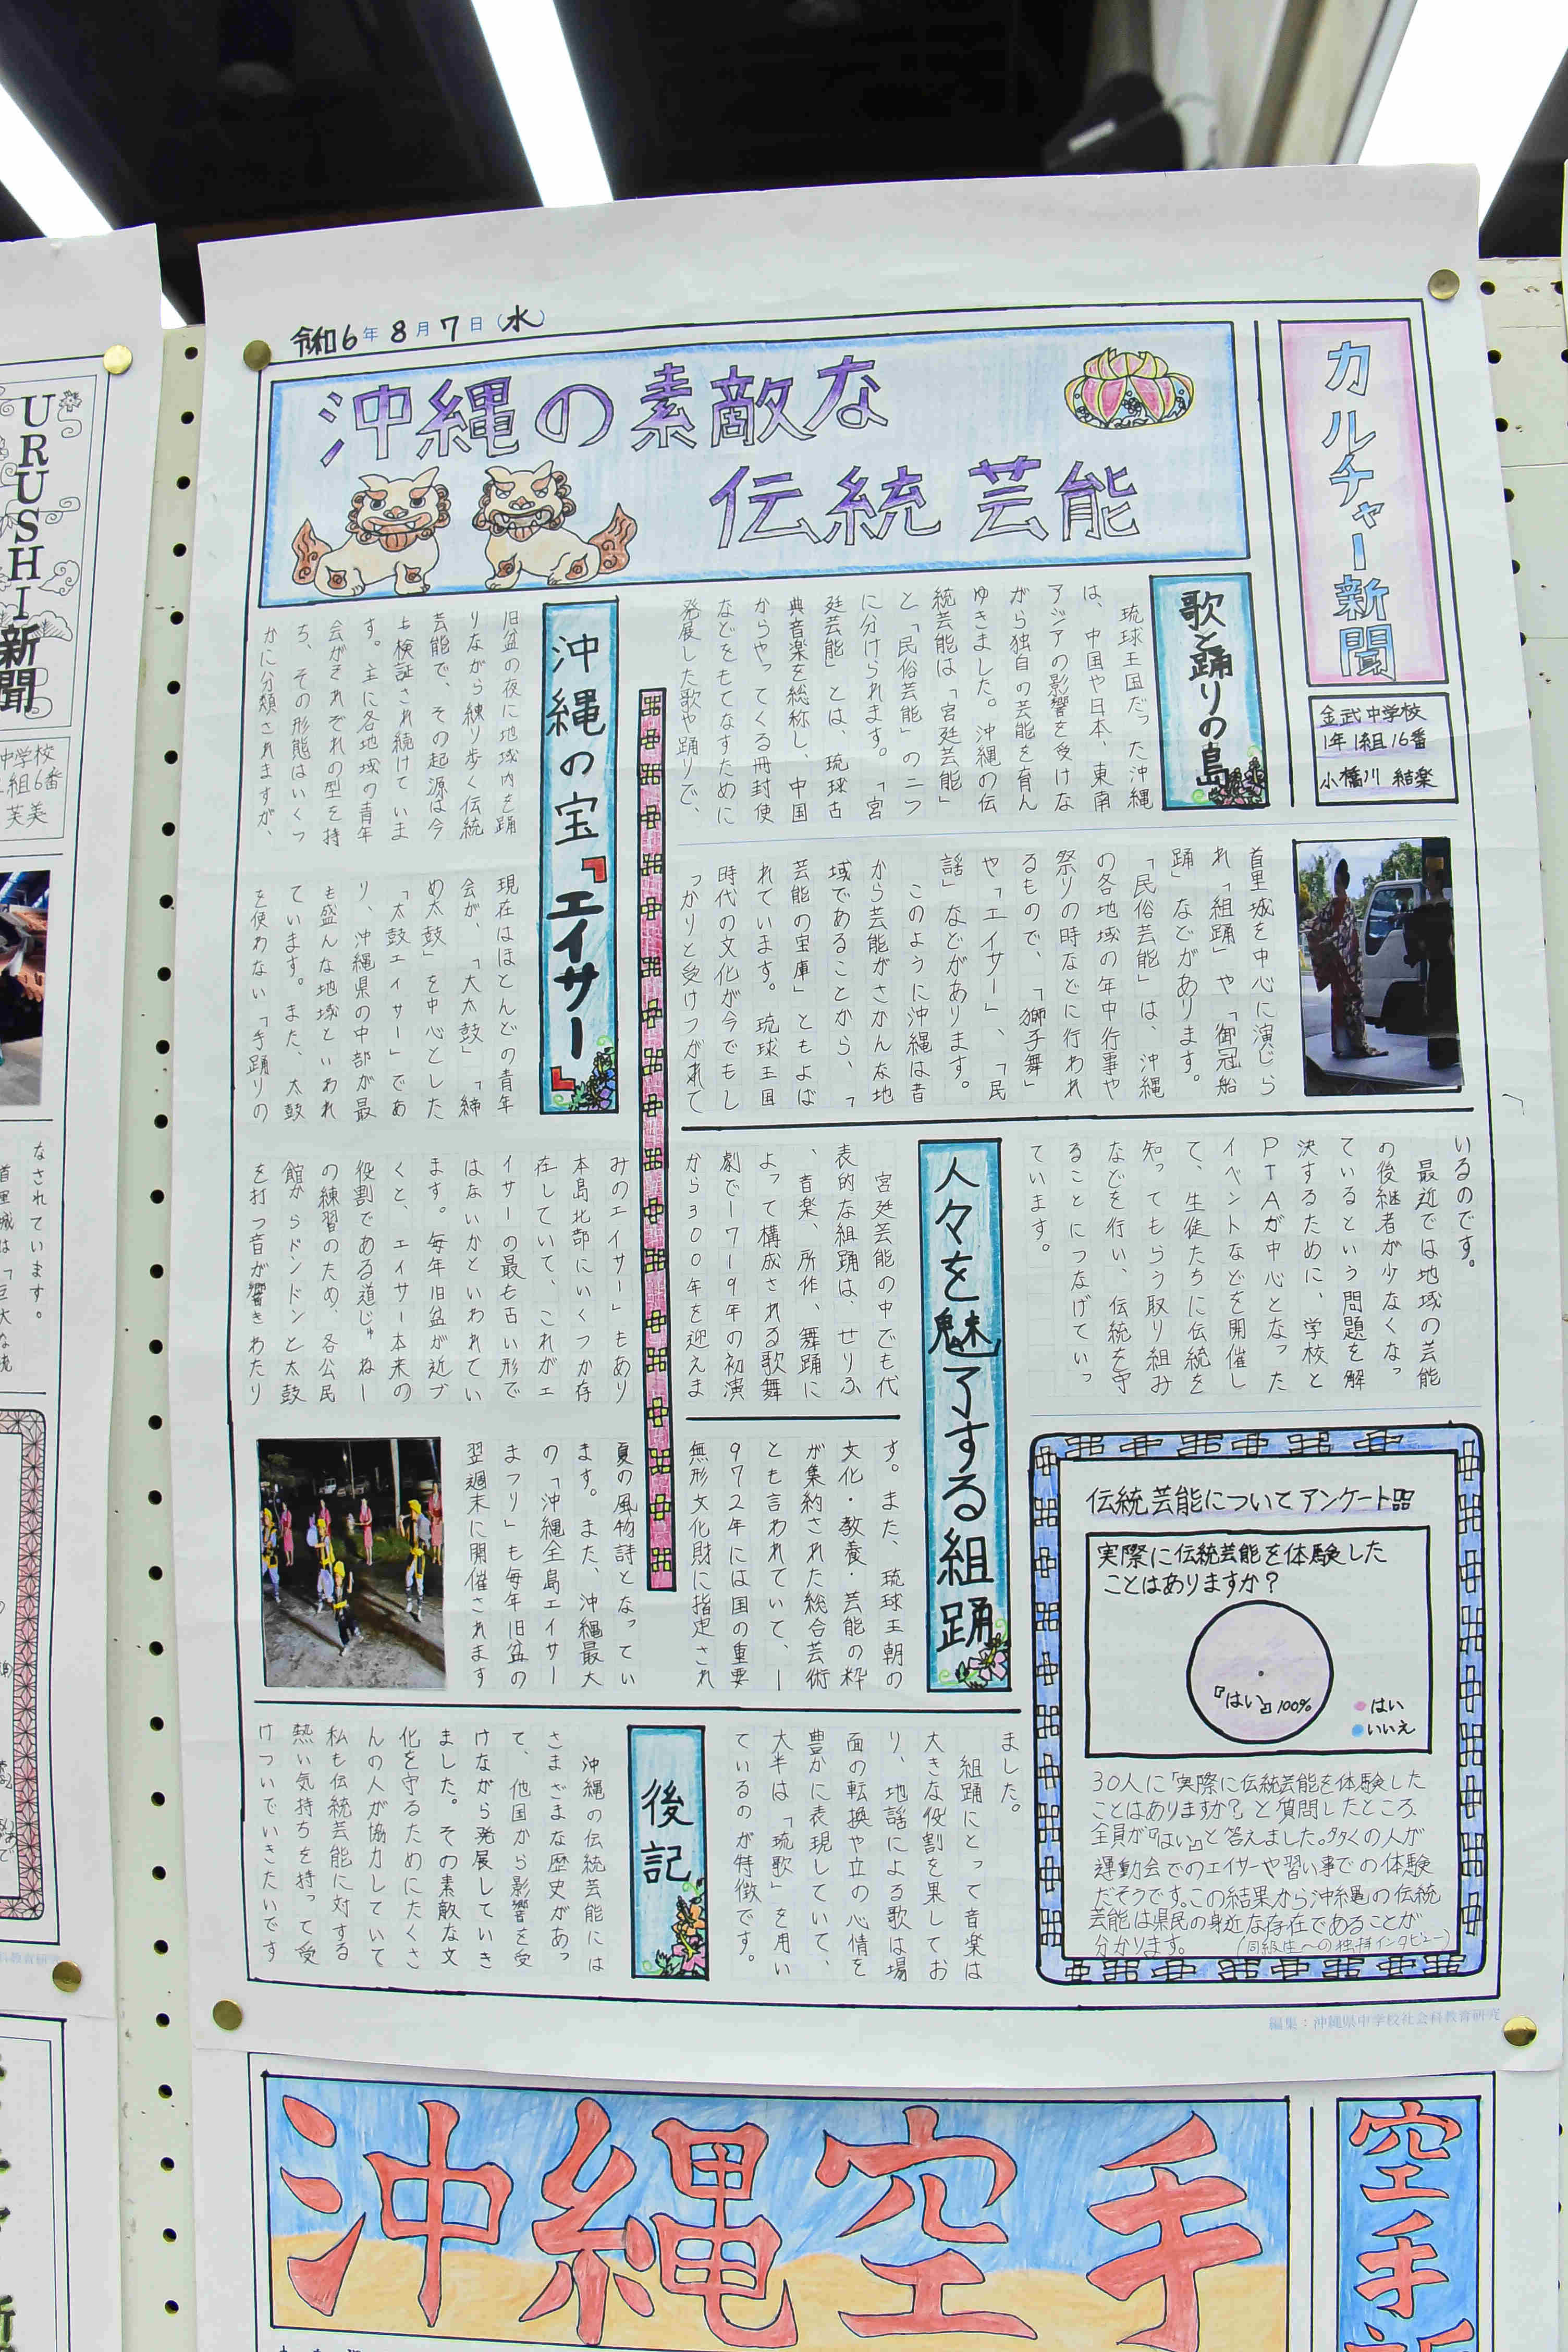 令和6年8月7日(水)
沖縄の素敵な
伝統芸能
カルチャー新聞
金武中学校
1年1組16番
小橋川 結楽
歌と踊りの島
琉球王国だった沖縄
は、中国や日本、東南
アジアの影響を受けな
がら独自の芸能を育ん
ゆきました。沖縄の伝
統芸能は「宮廷芸能」
と「民俗芸能」の二つ
に分けられます。「宮
廷芸能」とは、琉球古
典音楽を総称し、中国
からやってくる冊封使
などをもてなすために
発展した歌や踊りで、
首里城を中心に演じら
れ「組踊」や「御冠船
踊」などがあります。
「民俗芸能」は、沖縄
の各地域の年中行事や
祭りの時などに行われ
るもので、「獅子舞」
や「エイサー」、「民
謡」などがあります。
このように沖縄は昔
から芸能がさかんな地
域であることから、「
芸能の宝庫」ともよば
れています。琉球王国
時代の文化が今でもし
っかりと受けつがれて
いるのです。
最近では地域の芸能
の後継者が少なくなっ
ているという問題を解
決するために、学校と
PTAが中心となった
イベントなどを開催し
て、生徒たちに伝統を
知ってもらう取り組み
などを行い、伝統を守
ることにつなげていっ
ています。
人々を魅了する組踊
宮廷芸能の中でも代
表的な組踊は、せりふ
、音楽、所作、舞踊に
よって構成される歌舞
劇で1719年の初演
から300年を迎えま
す。また、琉球王朝の
文化・教養・芸能の粋
が集約された総合芸術
とも言われていて、1
972年には国の重要
無形文化財に指定され
ました。
組踊にとって音楽は
大きな役割を果してお
り、地謡による歌は場
面の転換や立の心情を
豊かに表現していて、
大半は「琉歌」を用い
ているのが特徴です。
沖縄の宝『エイサー』
旧盆の夜に地域内を踊
りながら練り歩く伝統
芸能で、その起源は今
も検証され続けていま
す。主に各地域の青年
会がそれぞれの型を持
ち、その形態はいくつ
かに分類されますが、
現在はほとんどの青年
会が、「大太鼓」「締
め太鼓」を中心とした
「太鼓エイサー」であ
り、沖縄県の中部が最
も盛んな地域といわれ
ています。また、太鼓
を使わない「手踊りの
みのエイサー」もあり
本島北部にいくつか存
在していて、これがエ
イサーの最も古い形で
はないかといわれてい
ます。毎年旧盆が近づ
くと、エイサー本来の
役割である道じゅねー
の練習のため、各公民
館からドンドンと太鼓
を打つ音が響きわたり
夏の風物詩となってい
ます。また、沖縄最大
の「沖縄全島エイサー
まつり」も毎年旧盆の
翌週末に開催されます
後記
沖縄の伝統芸能には
さまざまな歴史があっ
て、他国から影響を受
けながら発展していき
ました。その素敵な文
化を守るためにたくさ
んの人が協力していて
私も伝統芸能に対する
熱い気持ちを持って受
けついでいきたいです
伝統芸能についてアンケート
実際に伝統芸能を体験した
ことはありますか?
『はい』100%
はい
いいえ
30人に「実際に伝統芸能を体験した
ことはありますか?」と質問したところ、
全員が『はい』と答えました。多くの人が
運動会でのエイサーや習い事での体験
だそうです。この結果から沖縄の伝統
芸能は県民の身近な存在であることが
分かります。
(同級生への独持インタビュー)
編集:沖縄県中学校社会科教育研究
沖縄空手
空手新
URUSHI新聞
中学校
組6番
芙美
なされています。